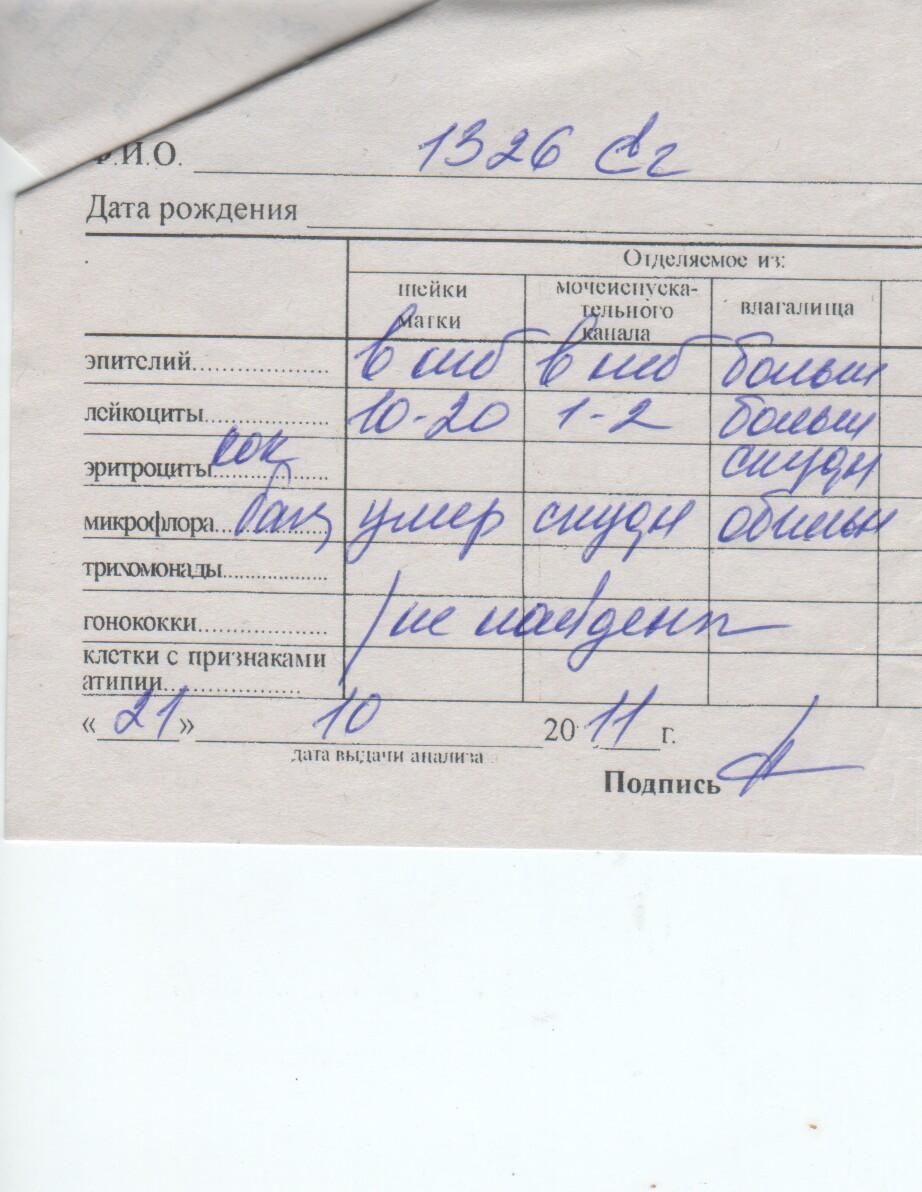 Ф.И.О. 1326
Дата рождения
Отделяемое из:
шейки матки мочеиспуска-тельного канала влагалища
эпителий.................... в неб в неб больш
лейкоциты.................. 10-20 1-2 больш
эритроциты кок................ скудн
микрофлора бац умер скудн обильн
трихомонады..................
гонококки.................... не найдены
клетки с признаками
атипии.....................
« 21 » 10 20 11 г.
дата выдачи анализа
Подпись